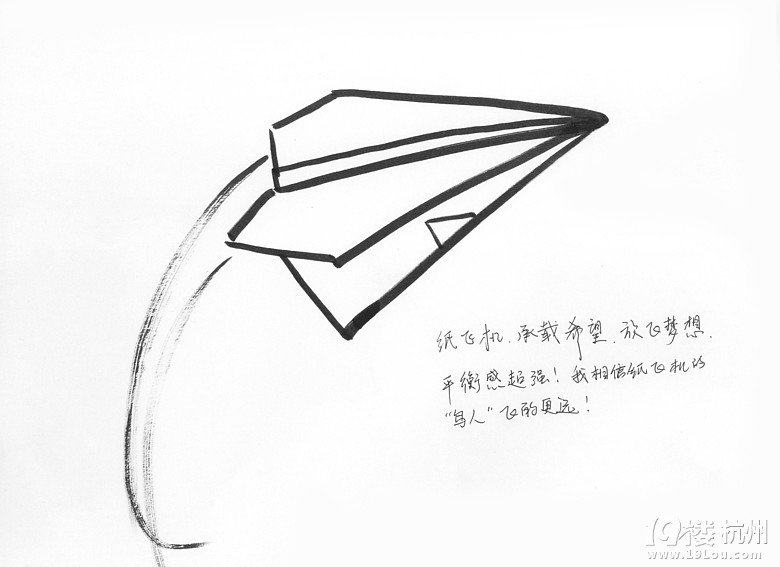 纸飞机、承载希望、放飞梦想.
平衡感超强！我相信纸飞机的
“鸟人”飞的更远！
19楼杭州
www.19Lou.com